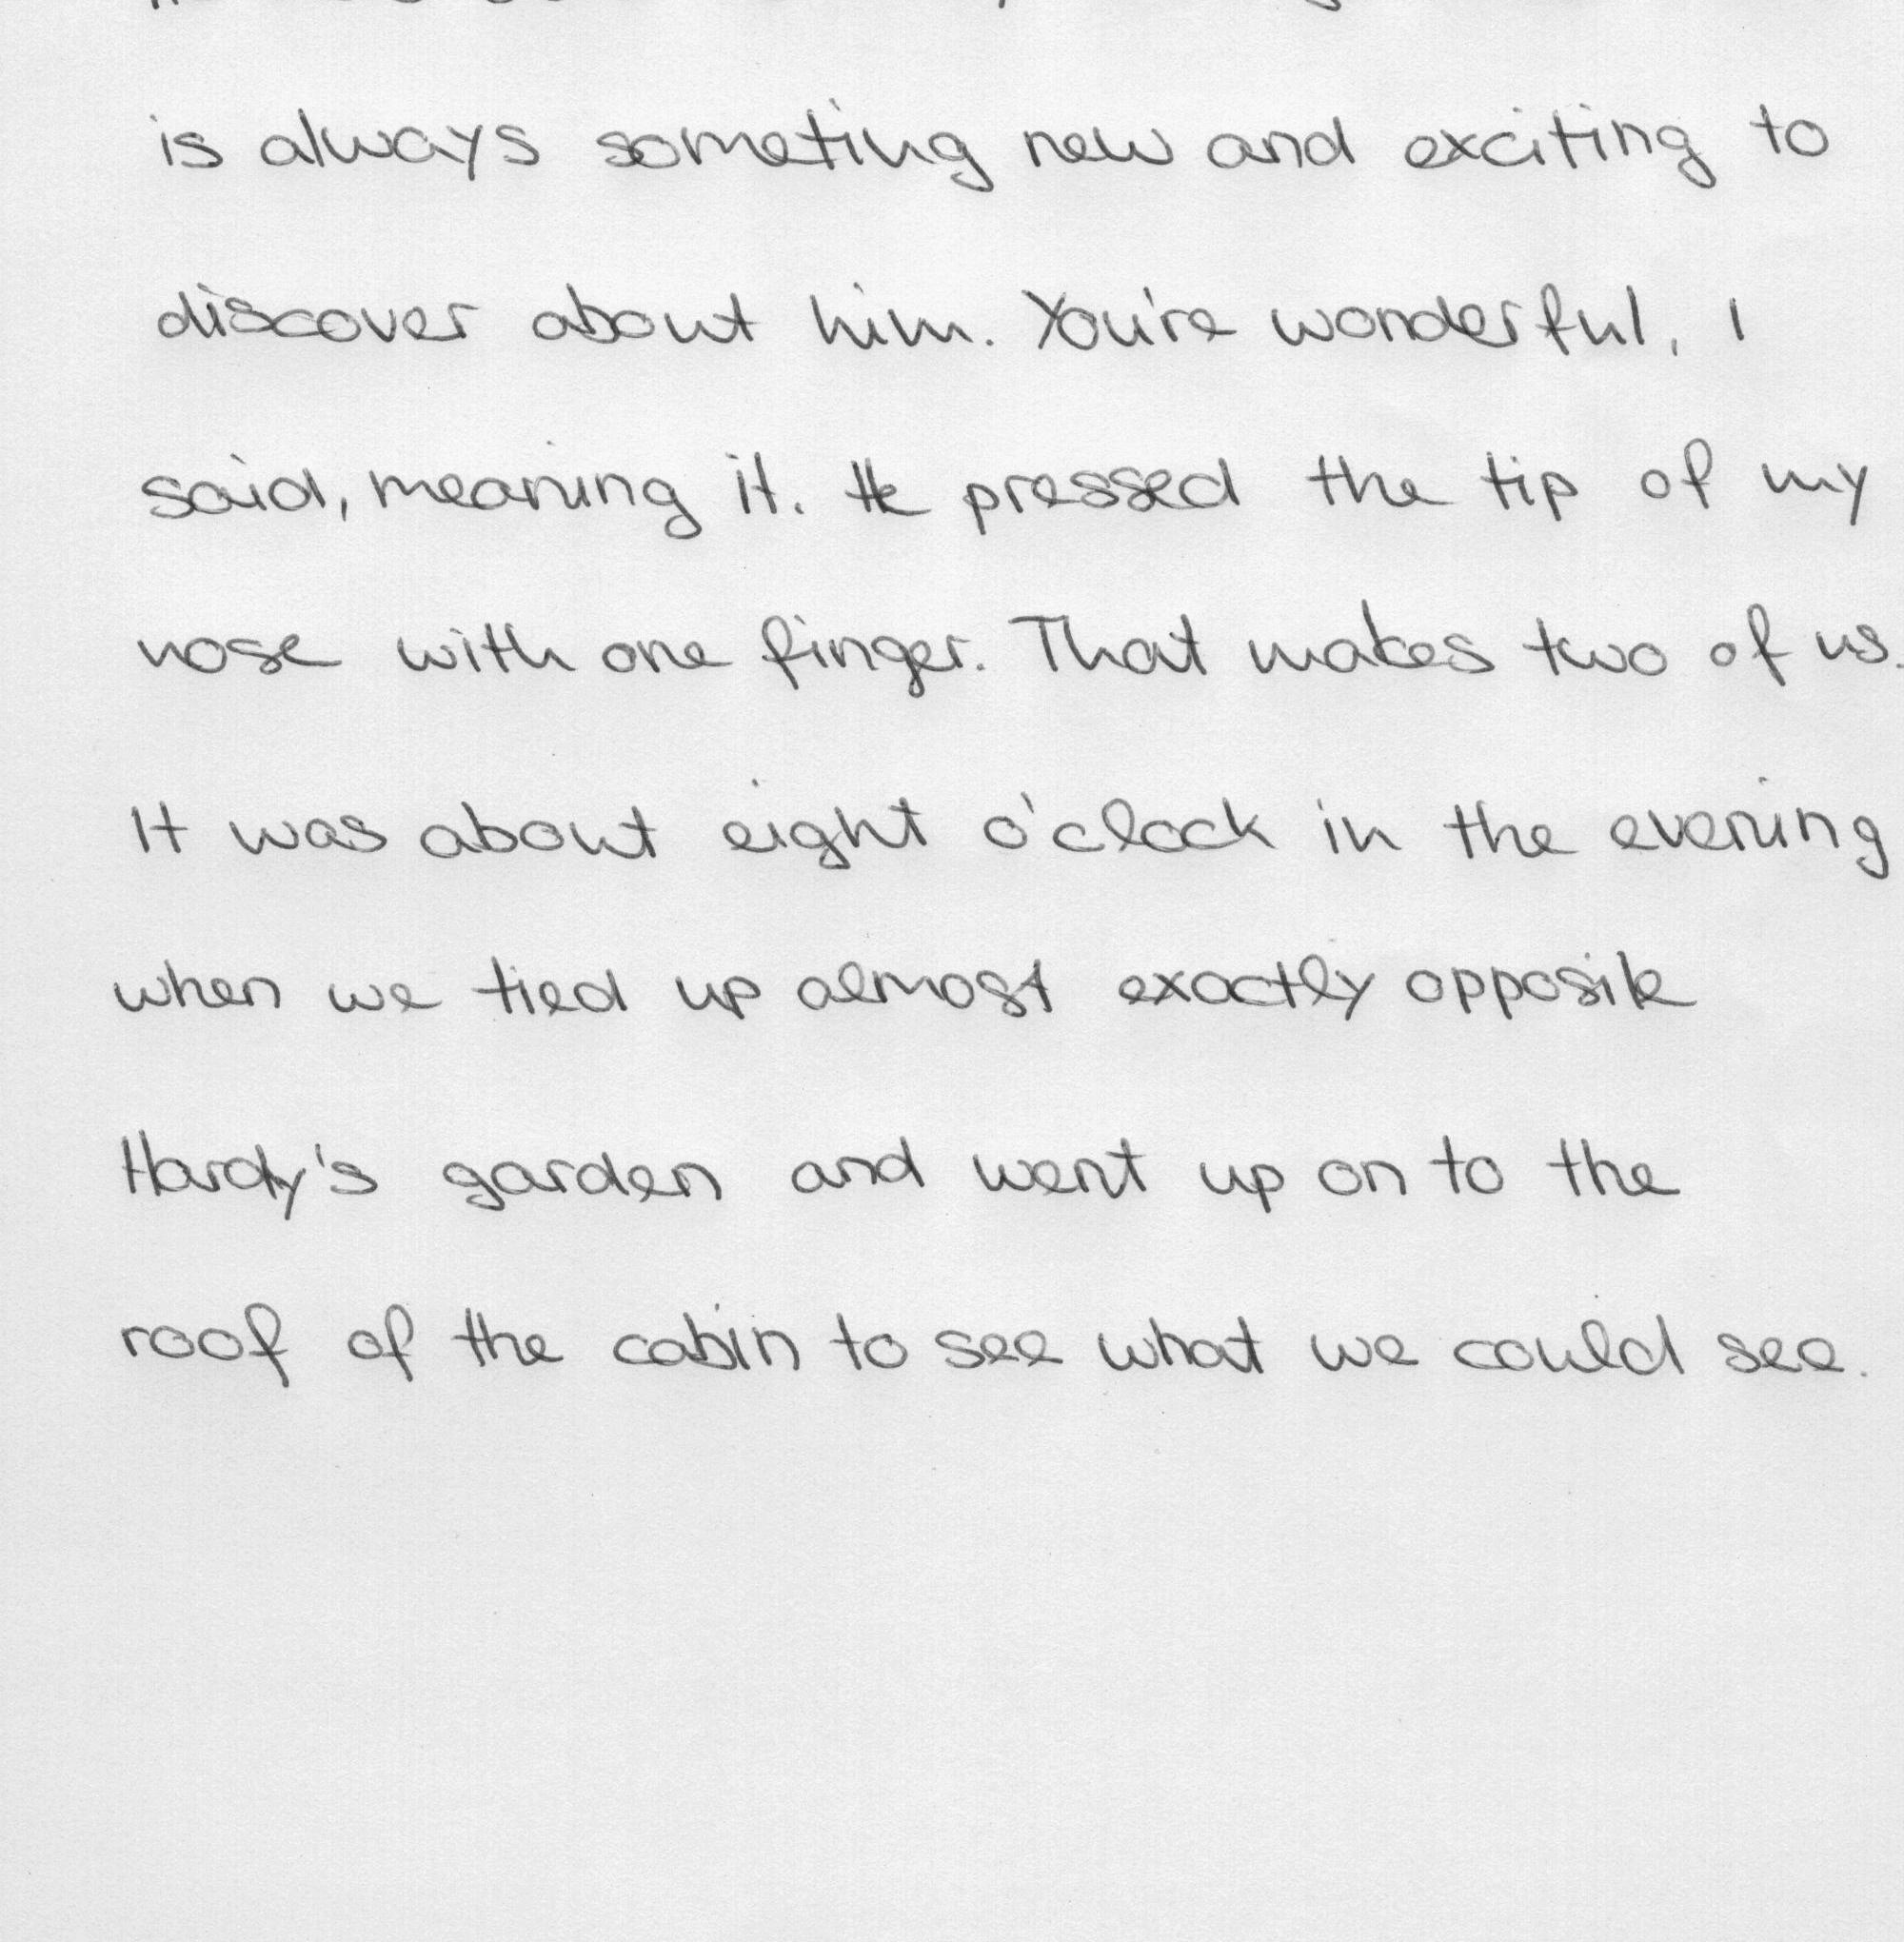 is always someting new and exciting to
discover about him. You're wonderful, I
said, meaning it. He pressed the tip of my
nose with one finger. That makes two of us.
It was about eight o'clock in the evening
when we tied up almost exactly opposite
Hardy's garden and went up on to the
roof of the cabin to see what we could see.